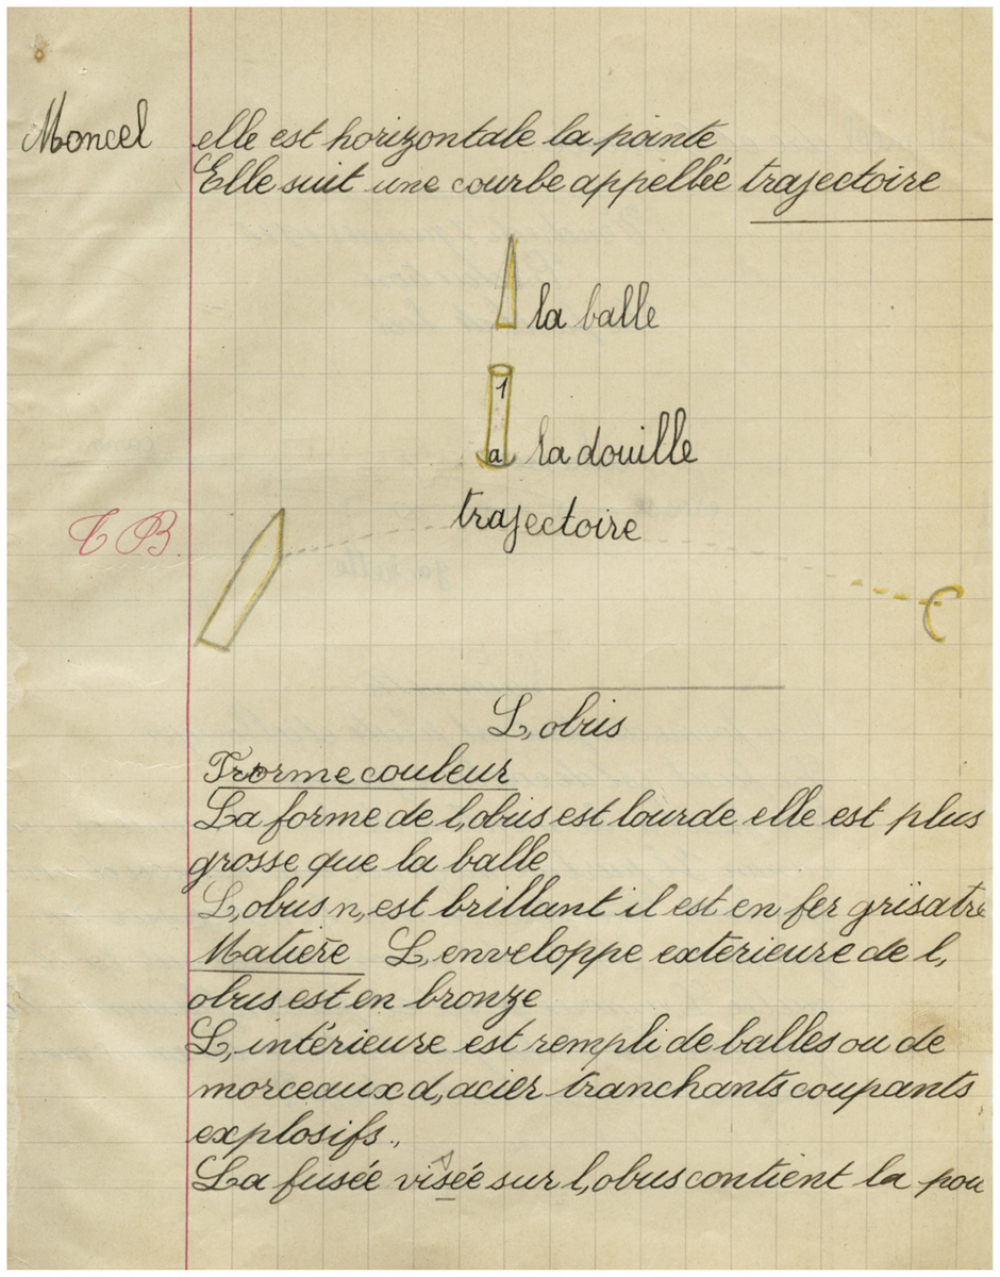 Moncel
elle est horizontale la pointe
Elle suit une courbe appellée trajectoire
la balle
1
a la douille
trajectoire
T B.
L,obus
Forme couleur
La forme de l,obus est lourde elle est plus
grosse que la balle
L,obus n,est brillant il est en fer grisatre
Matière L,enveloppe exterieure de l,
obus est en bronze
L,intérieure est rempli de balles ou de
morceaux d,acier tranchants coupants
explosifs.,
La fusée visée sur l,obus contient la pou